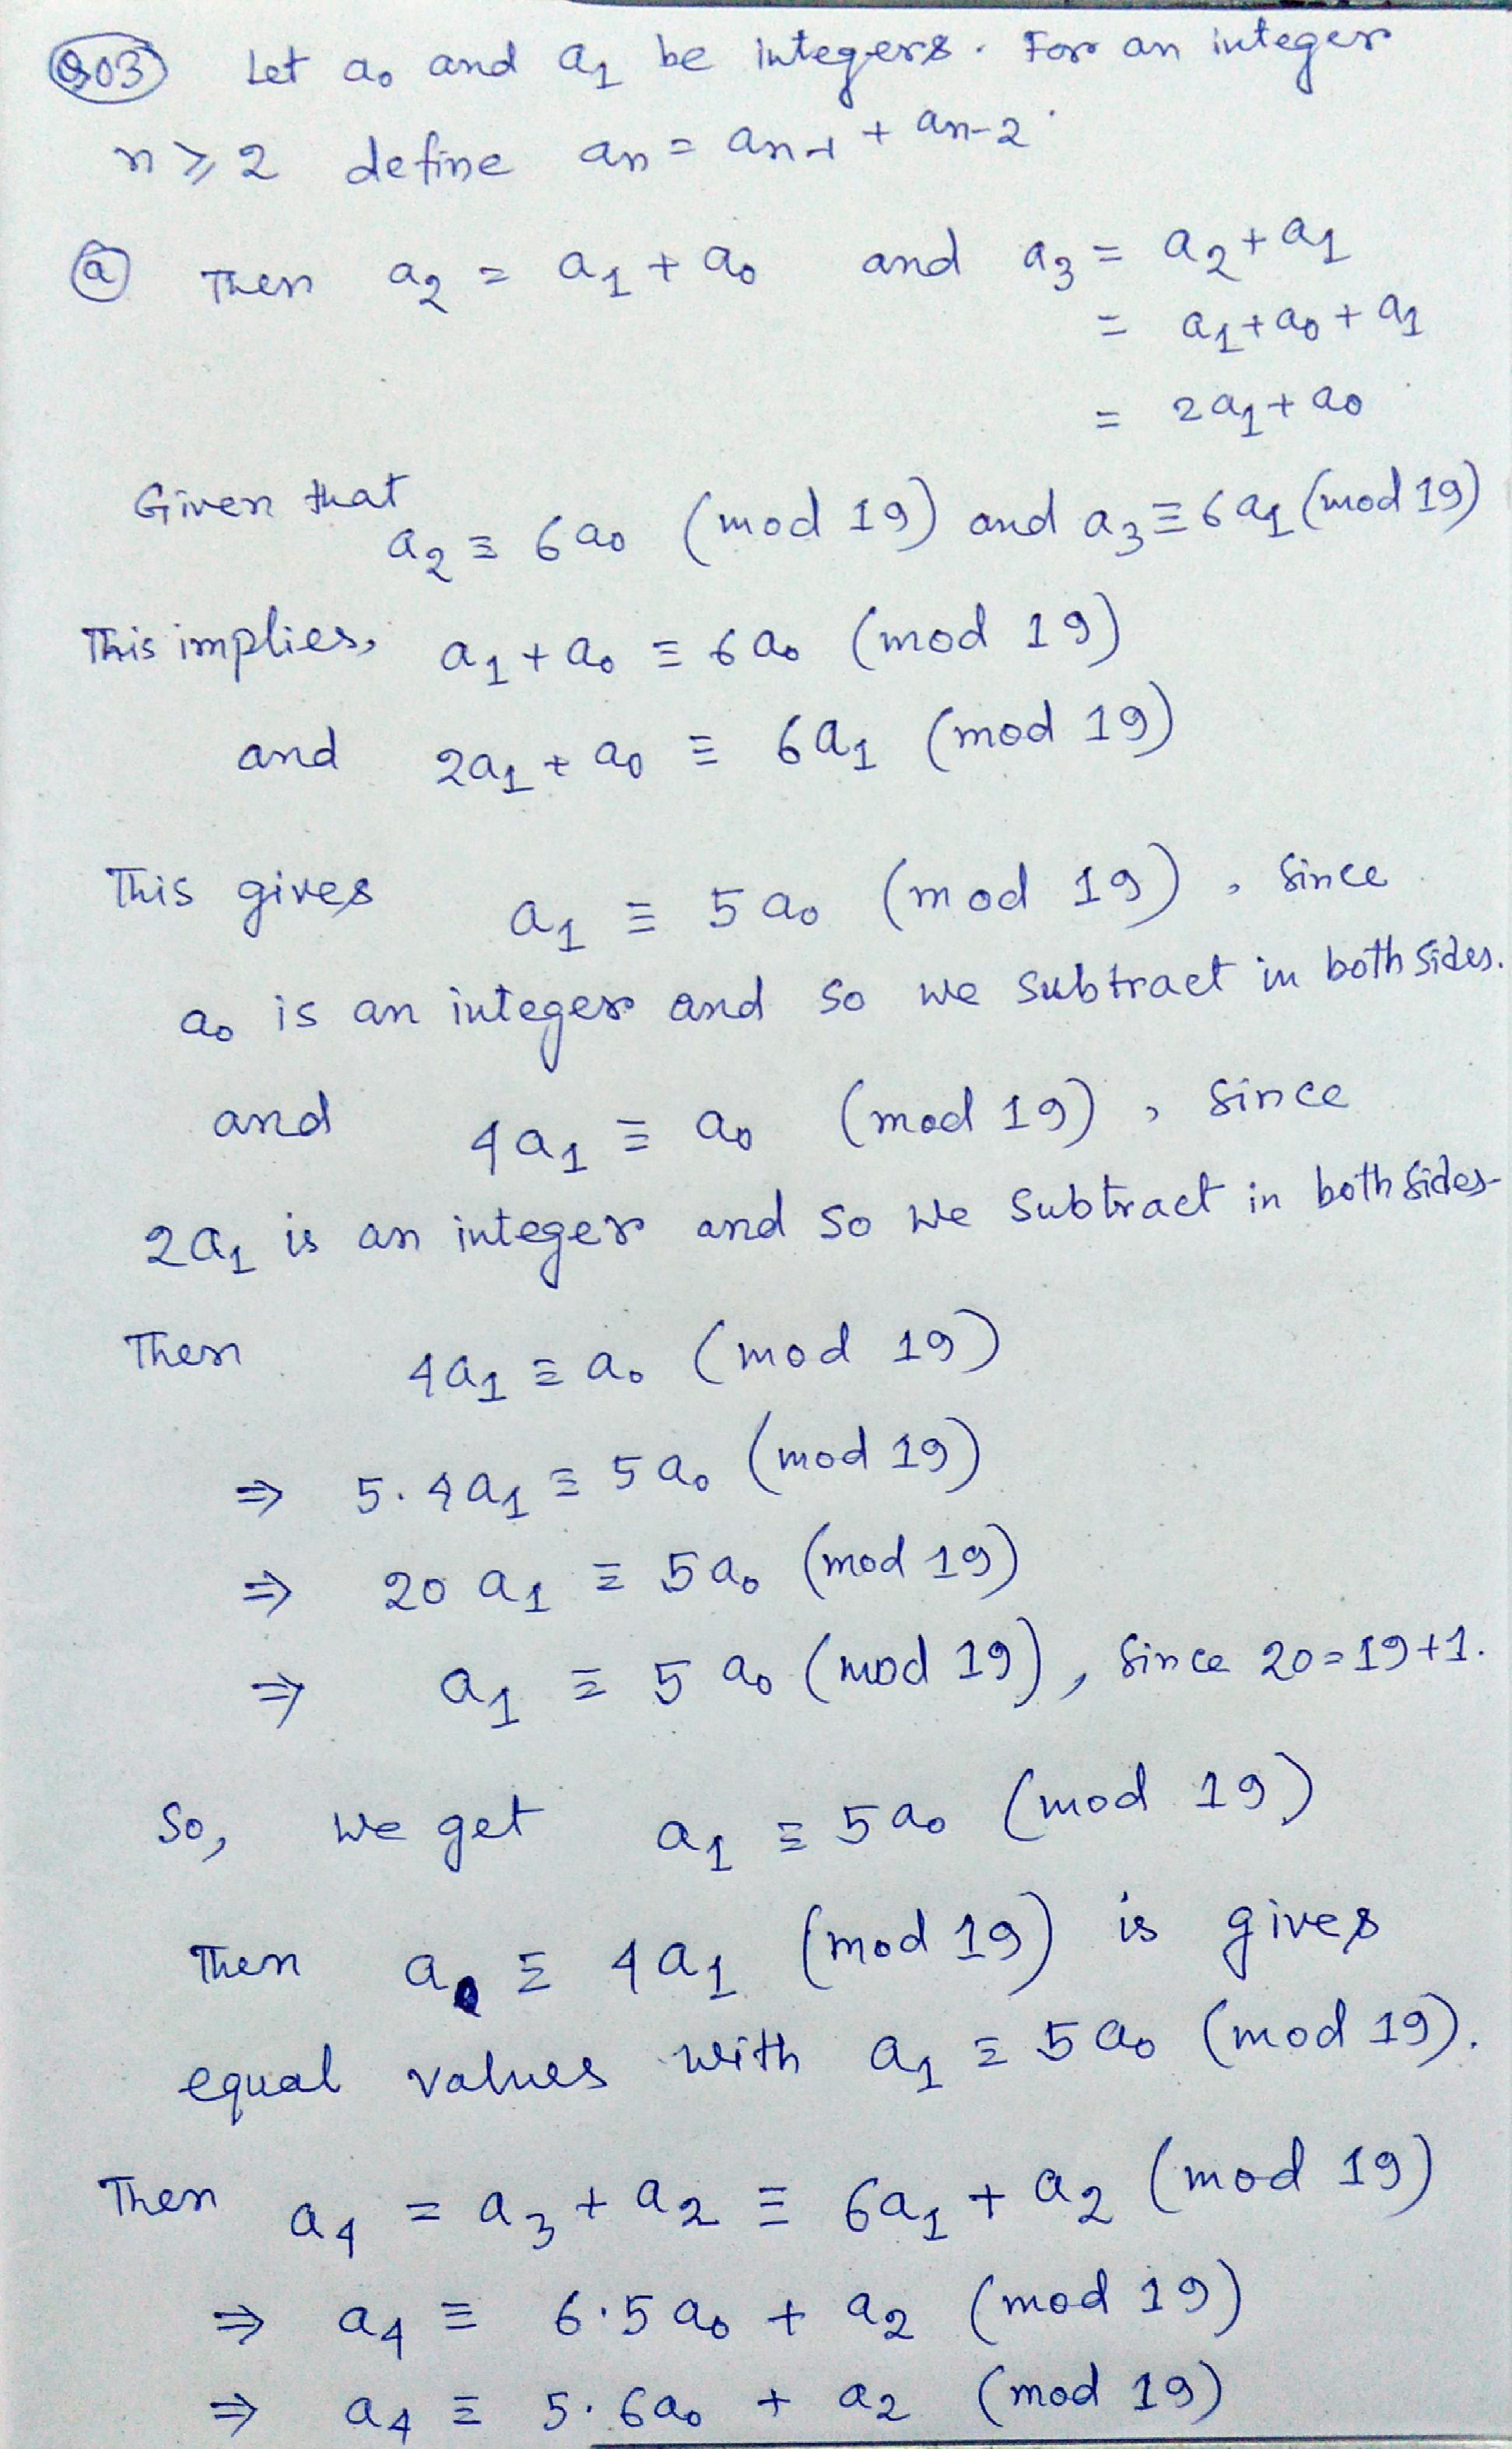 Q03 Let a₀ and a₁ be integers. For an integer
n ≥ 2 define aₙ = aₙ₋₁ + aₙ₋₂.
(a) Then a₂ = a₁ + a₀ and a₃ = a₂ + a₁
= a₁ + a₀ + a₁
= 2a₁ + a₀.
Given that
a₂ ≡ 6a₀ (mod 19) and a₃ ≡ 6a₁ (mod 19)
This implies, a₁ + a₀ ≡ 6a₀ (mod 19)
and 2a₁ + a₀ ≡ 6a₁ (mod 19)
This gives a₁ ≡ 5a₀ (mod 19), Since
a₀ is an integer and so we subtract in both sides.
and 4a₁ ≡ a₀ (mod 19), Since
2a₁ is an integer and so we subtract in both sides-
Then 4a₁ ≡ a₀ (mod 19)
⇒ 5.4a₁ ≡ 5a₀ (mod 19)
⇒ 20a₁ ≡ 5a₀ (mod 19)
⇒ a₁ ≡ 5a₀ (mod 19), Since 20=19+1.
So, we get a₁ ≡ 5a₀ (mod 19)
Then a₀ ≡ 4a₁ (mod 19) is gives
equal values with a₁ ≡ 5a₀ (mod 19).
Then a₄ = a₃ + a₂ ≡ 6a₁ + a₂ (mod 19)
⇒ a₄ ≡ 6.5a₀ + a₂ (mod 19)
⇒ a₄ ≡ 5.6a₀ + a₂ (mod 19)